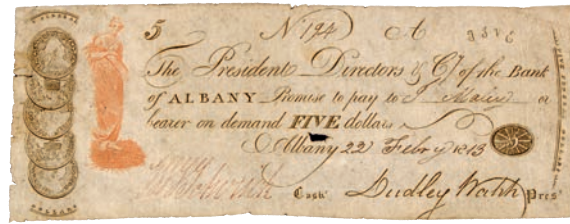 5 No 194 A
The President Directors & Co. of the Bank
of ALBANY Promise to pay to or
bearer on demand FIVE dollars
Albany 22 Febry 1813
Cash.r Dudley Walsh Pres.t